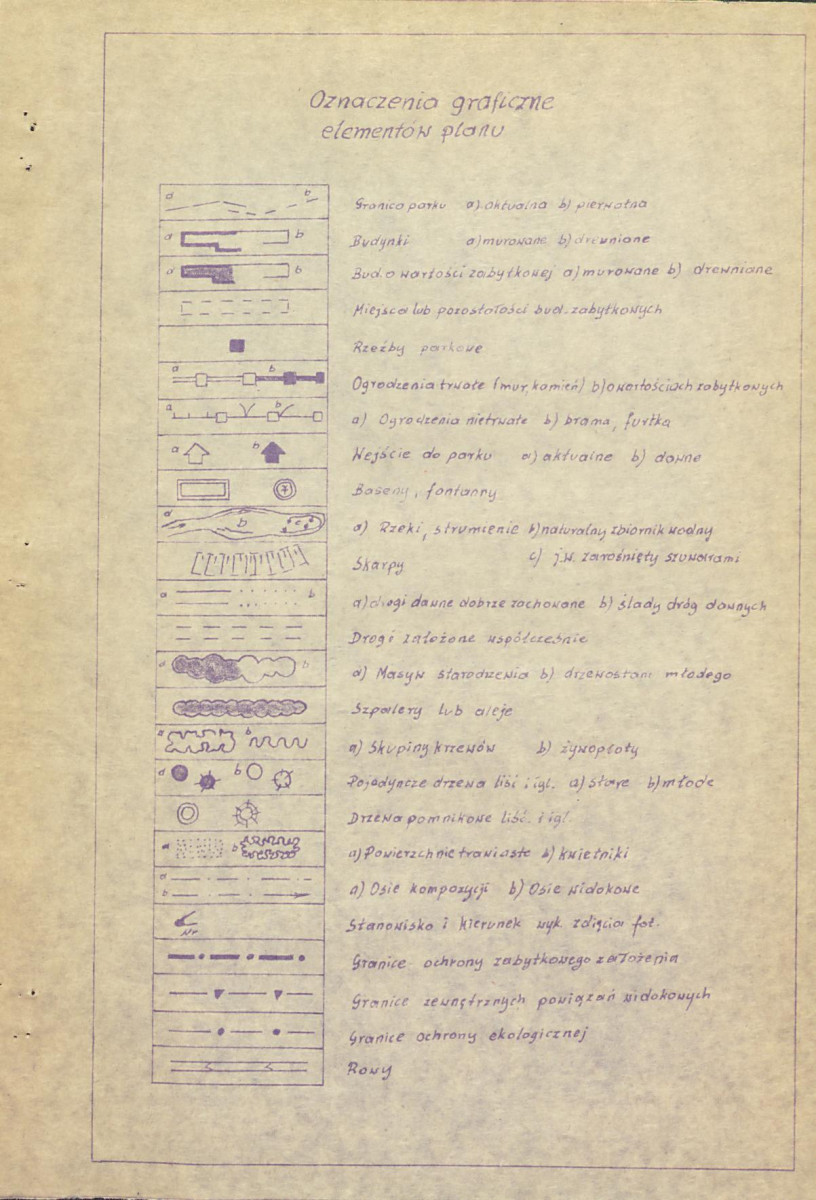 Oznaczenia graficzne
elementów planu
a b Granica parku a) aktualna b) pierwotna
a b Budynki a) murowane b) drewniane
a b Bud. o wartości zabytkowej a) murowane b) drewniane
Miejsca lub pozostałości bud. zabytkowych
Rzeźby parkowe
a b Ogrodzenia trwałe (mur, kamień) b) o wartościach zabytkowych
a b a) Ogrodzenia nietrwałe b) brama, furtka
a b Wejście do parku a) aktualne b) dawne
Baseny, fontanny
a b c a) Rzeki, strumienie b) naturalny zbiornik wodny
c) j.w. zarośnięty szuwarami
Skarpy
a b a) drogi dawne dobrze zachowane b) ślady dróg dawnych
Drogi założone współcześnie
a b a) Masyw starodrzewia b) drzewostanu młodego
Szpalery lub aleje
a b a) Skupiny krzewów b) żywopłoty
a b Pojedyncze drzewa liśc i igl. a) stare b) młode
Drzewa pomnikowe liśc. i igl
a b a) Powierzchnie trawiaste b) kwietniki
a b a) Osie kompozycji b) Osie widokowe
Nr Stanowisko i kierunek wyk. zdjęcia fot.
Granice ochrony zabytkowego założenia
Granice zewnętrznych powiązań widokowych
Granice ochrony ekologicznej
Rowy